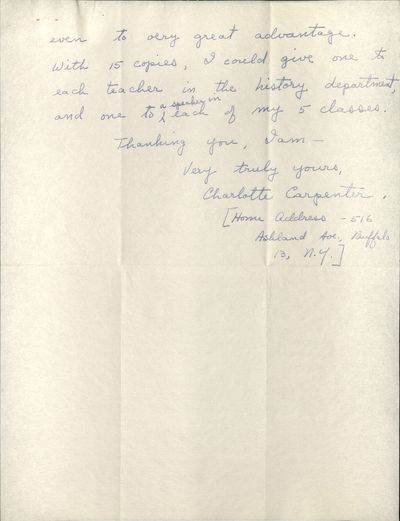 even to very great advantage.
With 15 copies, I could give one to
each teacher in the history department,
and one to a speaker in each of my 5 classes.
Thanking you, I am —
Very truly yours,
Charlotte Carpenter.
[Home Address - 516
Ashland Ave., Buffalo
13, N.Y.]